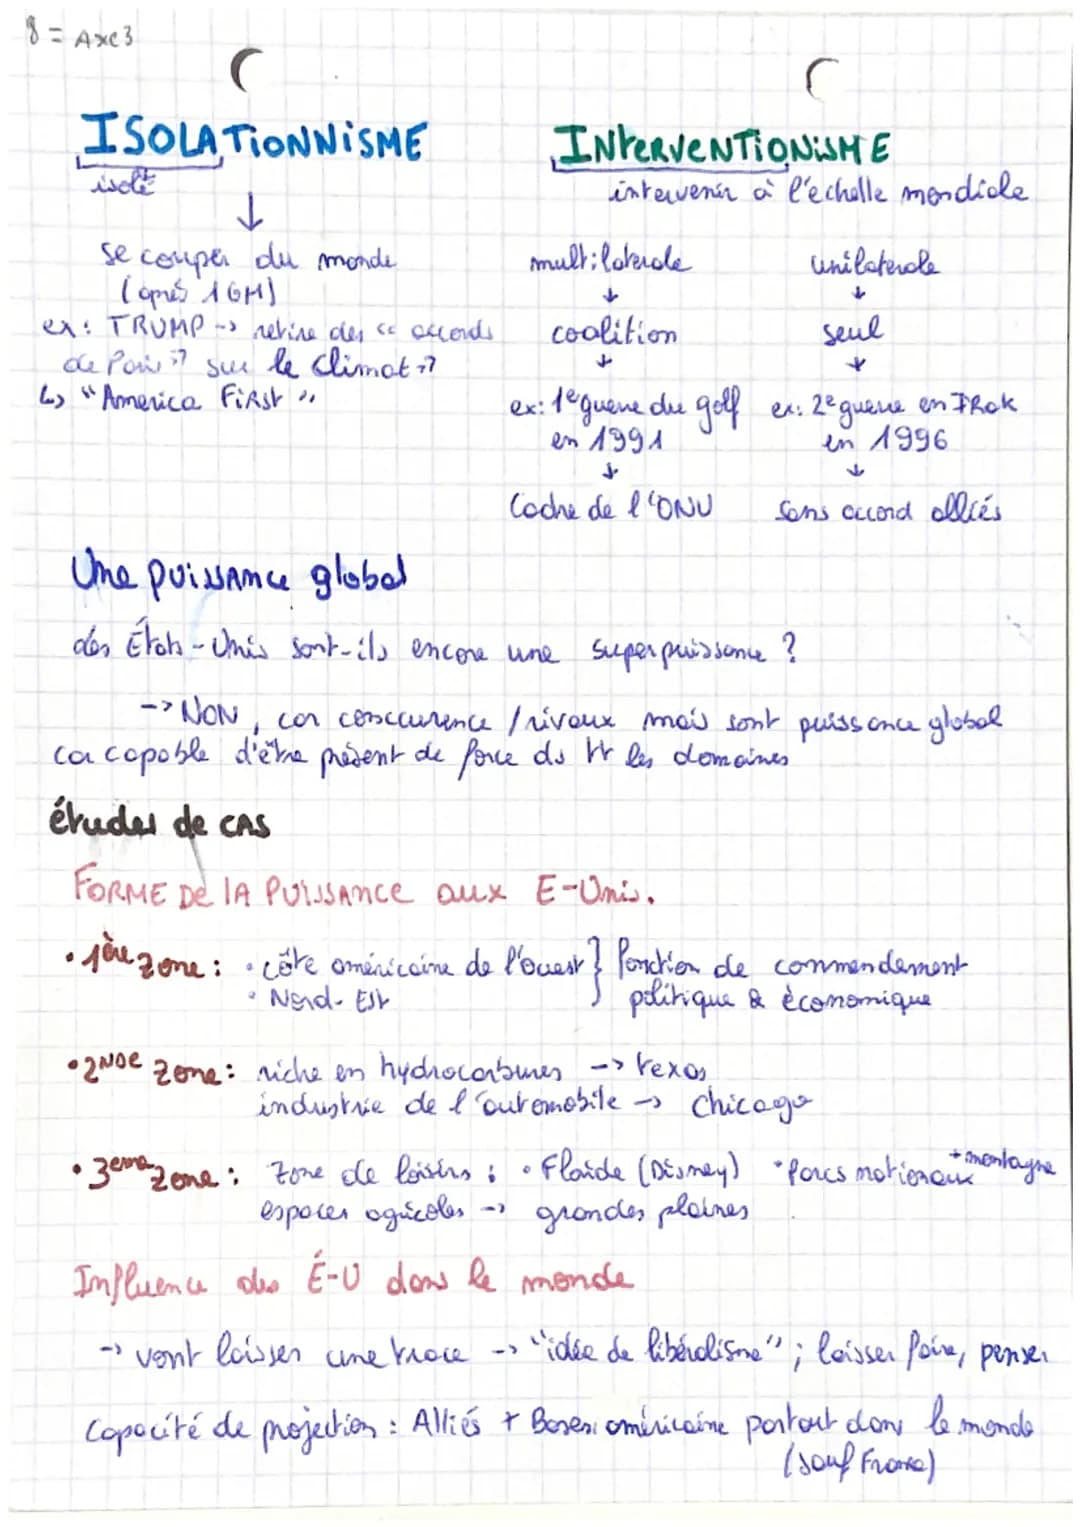 8 = Axe 3
ISOLATIONNISME
isolé
↓
se couper du monde
(après 1GM)
ex: TRUMP -> retire des "accords
de Paris" sur le climat"
↳ "America First"
INTERVENTIONISME
intervenir à l'échelle mondiale
multilaterale
↓
coalition
↓
ex: 1e guerre du golf
en 1991
↓
Cadre de l'ONU
unilaterale
↓
seul
↓
ex: 2e guerre en IRak
en 1996
↓
sans accord alliés
Une puissance global
des États-Unis sont-ils encore une superpuissance ?
-> NON, car conccurence / rivaux mais sont puissance global
car capable d'être présent de force ds tt les domaines
études de cas
FORME De lA PUISSANCE aux E-Unis.
• 1ère zone : • côte américaine de l'ouest } fonction de commendement
• Nord-Est politique & économique
• 2NDe zone : riche en hydrocarbures -> texas
industrie de l'automobile -> Chicago
• 3eme zone : zone de loisirs : • Floride (Disney) • Parcs nationaux + montagne
espaces agricoles -> grandes plaines
Influence des É-U dans le monde
-> vont laisser une trace -> "idée de libéralisme" ; laisser faire, penser
Capacité de projection : Alliés + Bases américaine partout dans le monde
(sauf France)